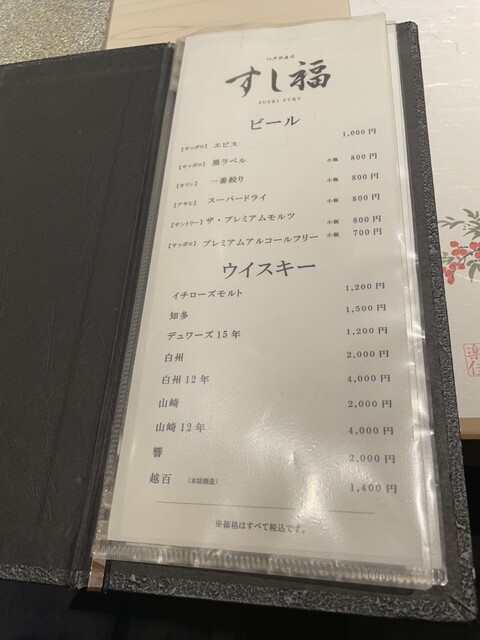 すし福
SUSHI FUKU
ビール
【サッポロ】 エビス 1,000円
【サッポロ】 黒ラベル 小瓶 800円
【キリン】 一番搾り 小瓶 800円
【アサヒ】 スーパードライ 小瓶 800円
【サントリー】 ザ・プレミアムモルツ 小瓶 800円
【サッポロ】 プレミアムアルコールフリー 小瓶 700円
ウイスキー
イチローズモルト 1,200円
知多 1,500円
デュワーズ15年 1,200円
白州 2,000円
白州12年 4,000円
山崎 2,000円
山崎12年 4,000円
響 2,000円
越百 (本坊酒造) 1,400円
※価格はすべて税込です。